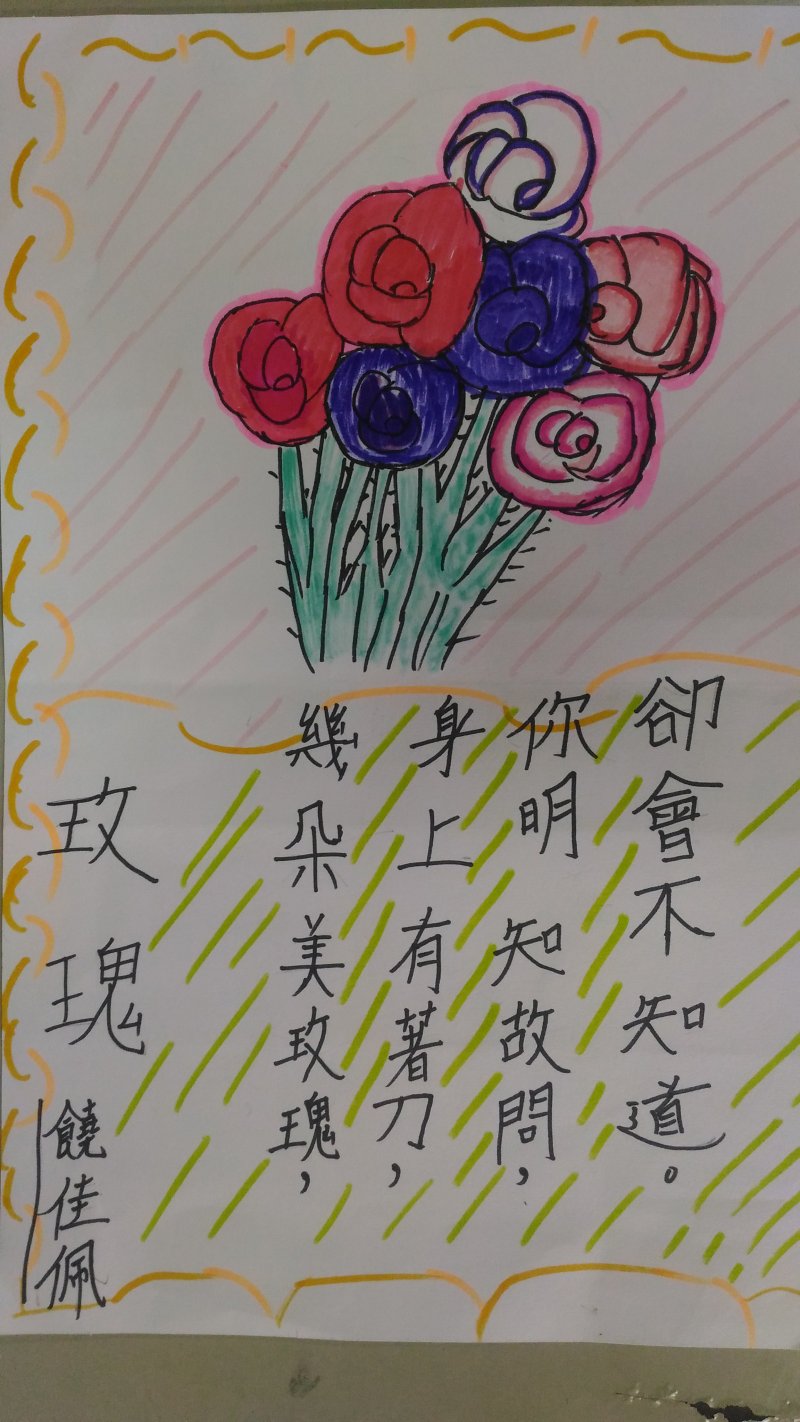 玫瑰
饒佳佩
幾朵美玫瑰，
身上有著刀，
你明知故問，
卻會不知道。